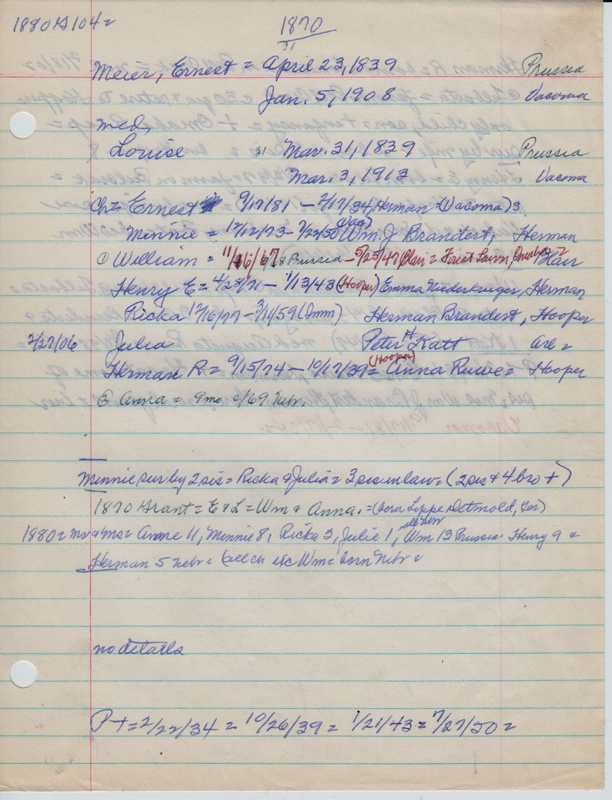 1880 1870
31
Meier, Ernest = April 23, 1839 Prussia
Jan. 5, 1908 Vacoma
med,
Louise Mar. 31, 1839 Prussia
Mar. 3, 1913 Vacoma
Ch = Ernest 9/17/81 - 2/17/34 (Herman Vacoma) 3
Minnie = 12/12/73 - 7/22/50 Wm. J Brandert, Herman
William = 11/16/67 Prussia - 5/25/47 (Blair = Forest Lawn, Omaha = Blair
Henry E = 4/28/71 - 1/13/43 (Hooper) Emma Niederkruger, Herman
Ricka 12/16/77 - 3/11/59 (Imm) Herman Brandert, Hooper
2/27/06 Julia Peter H Katt
Herman R = 9/15/74 - 10/17/39 = (Hooper) Anna Ruwe = Hooper
Anna = 9mo 1/69 Nebr.
Minnie sur by 2 sis = Ricka & Julia = 3 sis in law = (2 sis & 4 bro +)
1870 Grant = E & L = Wm & Anna. = (born Lippe Detmold, Ger)
1880 = mr & mrs = 11, Minnie 8, Ricka 3, Julie 1, Wm 13 Prussia Henry 9 &
Herman 5 Nebr = Wm = born Nebr =
no details
P + = 2/22/34 = 10/26/39 = 1/21/43 = 7/27/50 =